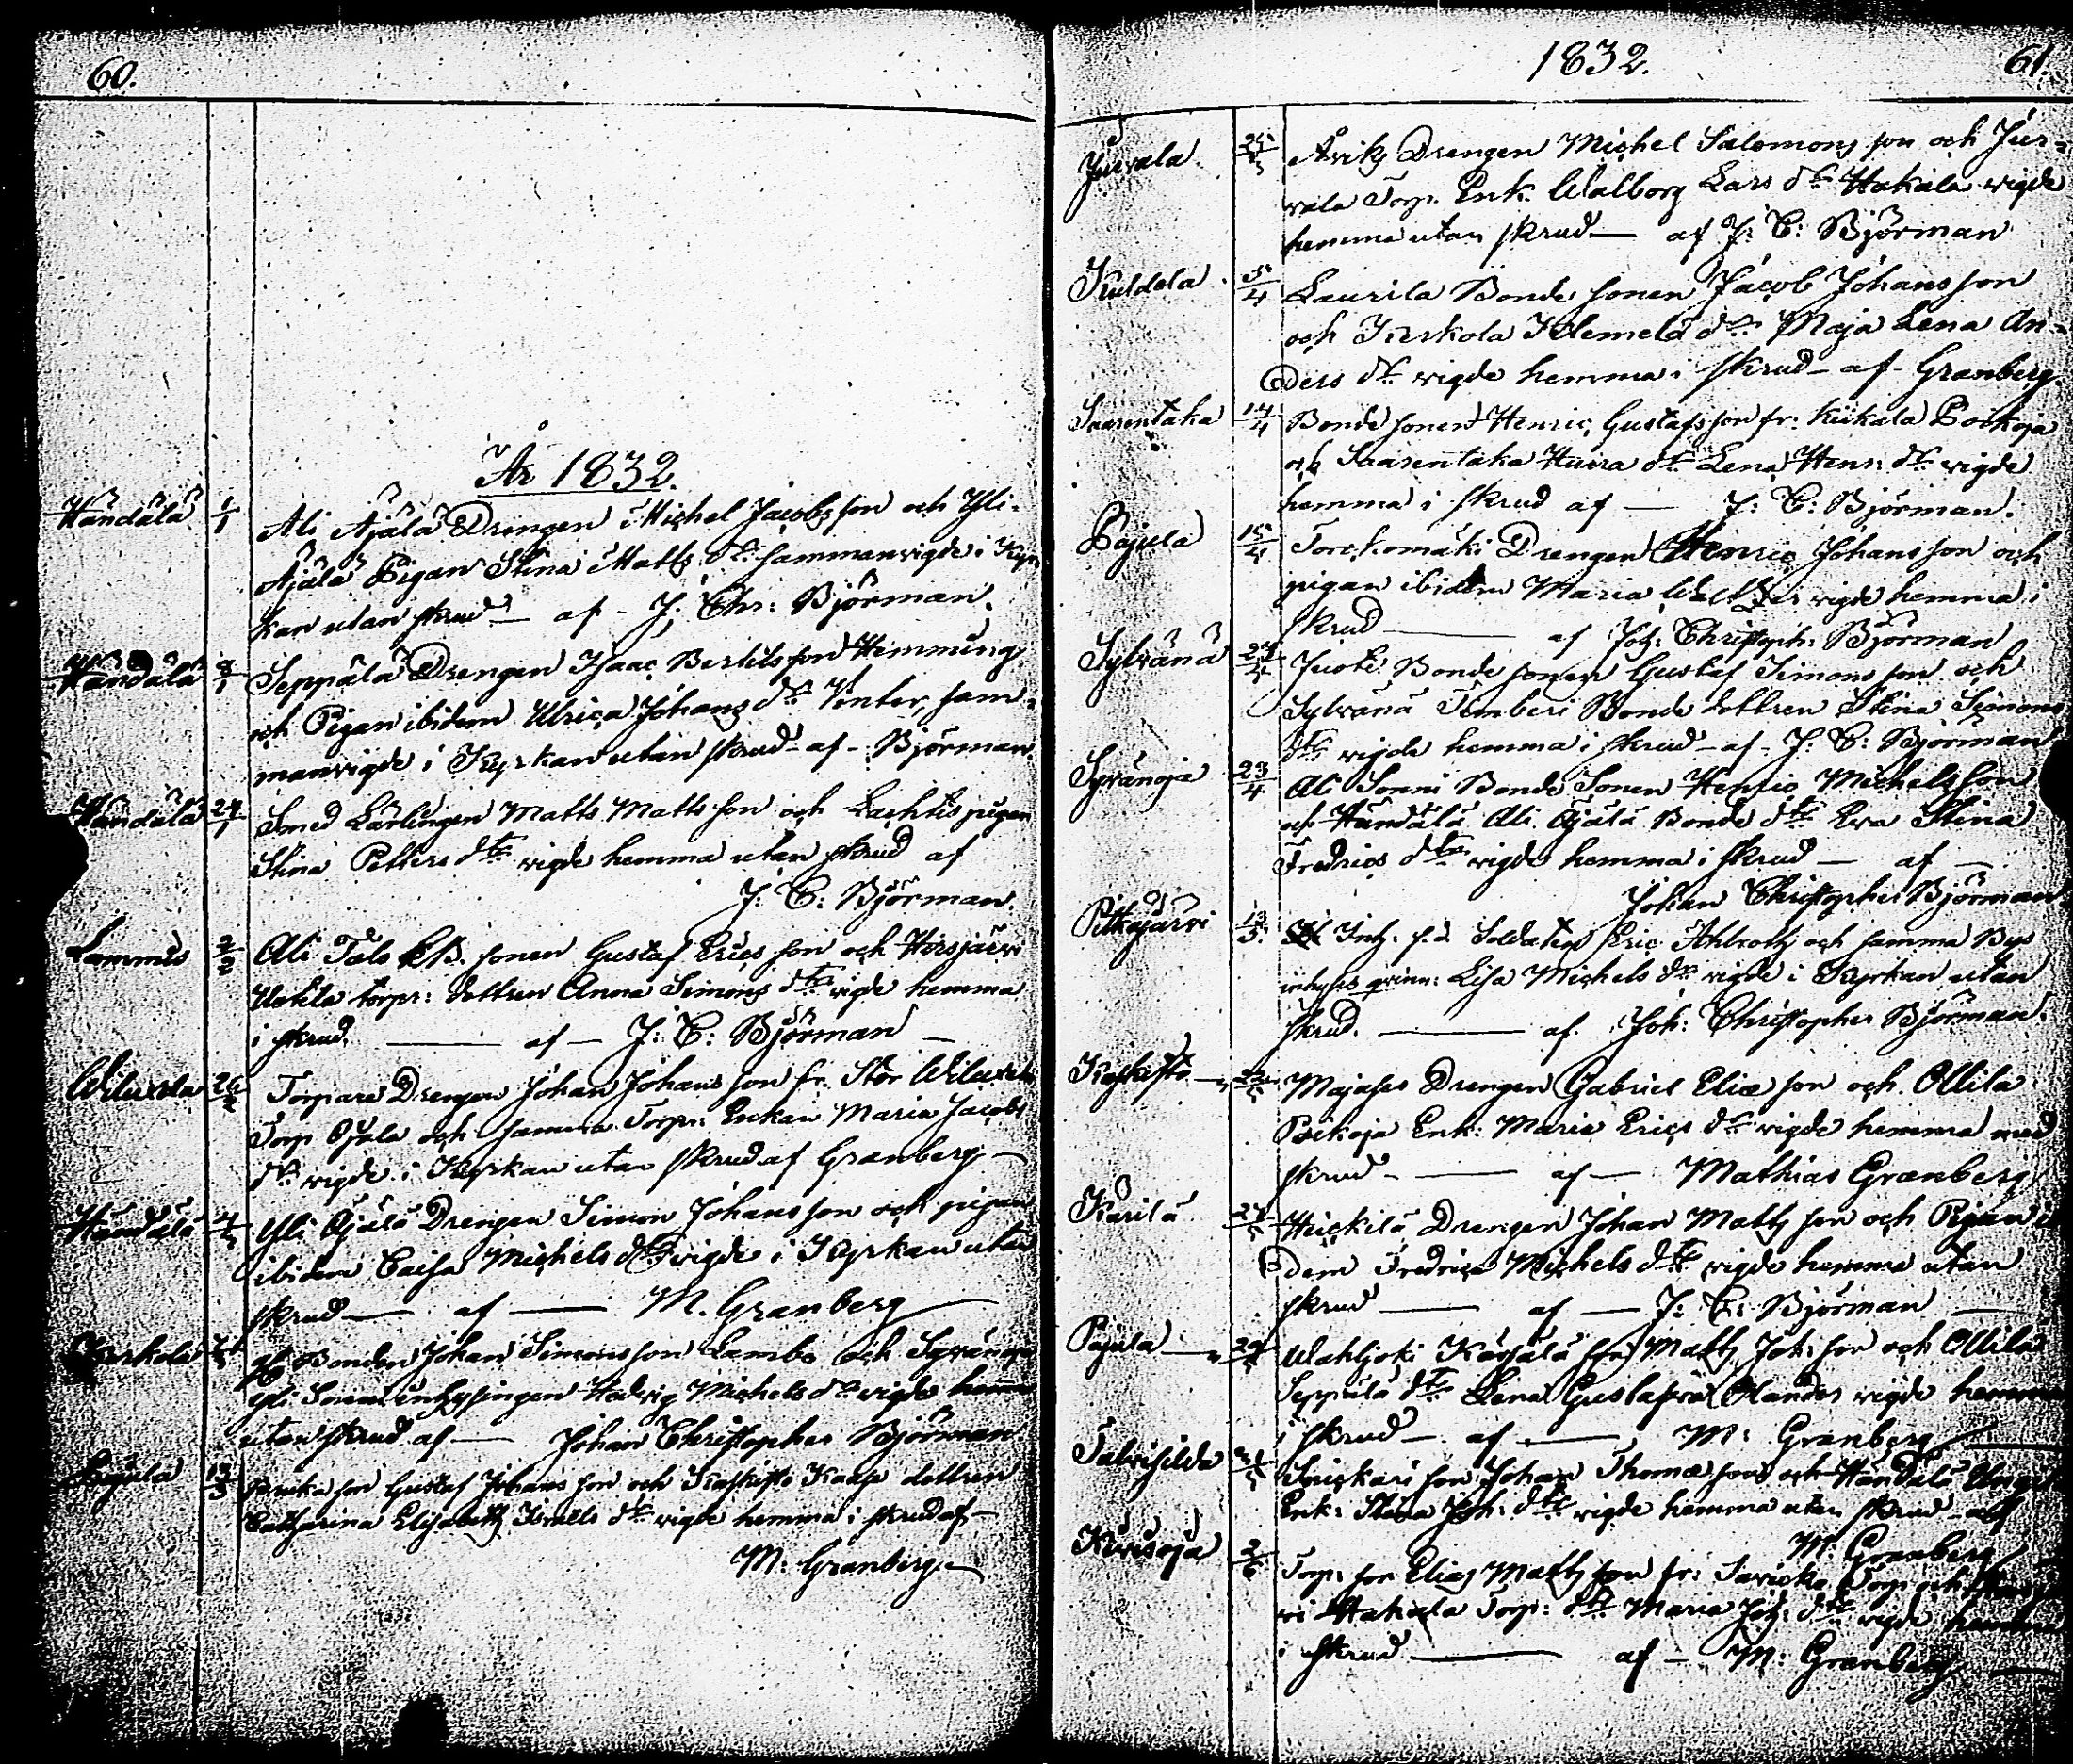 60.
År 1832.
Händälä 1/1 Ali Äjälä Drengen Michel Jacobsson och Yli-
Äjälä Pigan Stina Matts dr sammanvigde i Kyr
kan utan skrud — af - J: Chr: Björman.
Händälä 8/1 Seppälä Drengen Isaac Bertilsson Hemming
och Pigan ibidem Ulrica Johans dr Venter, sam-
manvigde i Kyrkan utan skrud - af - Björman.
Händälä 24/1 Smed Lärlingen Matts Mattsson och Lachtis pigan
Stina Petters dtr vigde hemma utan skrud af
J: C: Björman.
Lammis 2/2 Ali Talo B. sonen Gustaf Erics son och Hirsjärvi
torpr: dottren Anna Simons dtr vigde hemma
i skrud. — af — J: C: Björman —
Wiluxela 26/2 Torpare Drengen Johan Johans son fr. Stor Wiluxela
Torp Ojala och samma Torpr: Enkan Maria Jacobs
dr vigde i Kyrkan utan skrud af Granberg —
Händälä 4/3 Yli Äjälä Drengen Simon Johansson och pigan
ibidem Caisa Michels dtr vigde i Kyrkan utan
skrud — af — M. Granberg
Kerkola Bonden Johan Simonsson Lambo och Syvänoja
Yli Sonni inhysingen Hedvig Michels dr vigde hemma
utan skrud af — Johan Christopher Björman
Pajula 13/3 son Gustaf Johans son och Kaskisto dottren
Catharina Elisabeth Israels dr vigde hemma i skrud af —
M: Granberg —
1832. 61.
Juvala. 25/3 Äviks Drengen Michel Salomons son och Ju-
vala Torp. Enk. Walborg Lars dr Hakala vigde
hemma utan skrud — af J: C: Björman
Kuldala 5/4 Laurila Bonde sonen Jacob Johansson
och Kerkola Klemelä dr Maja Lena An-
ders dr vigde hemma i skrud — af - Granberg.
Saarentaka 14/4 Bonde sonen Henric Gustafsson fr: Kiikala
och Saarentaka dr Lena Henr: dr vigde
hemma i skrud af — J: C: Björman.
Pajula 15/4 Torckomäki Drengen Henric Johansson och
pigan ibidem Maria vigde hemma i
skrud — af Joh: Christoph: Björman
Sylvänä Bonde sonen Gustaf Simonsson och
Sylvänä Temberi Bonde dottren Stina Simons
dtr vigde hemma i skrud - af - J: C: Björman
Syvänoja 23/4 Ali Sonni Bonde Sonen Henric Michelsson
och Händälä Ali Äjälä Bonde dtr Eva Stina
Fredrics dtr vigde hemma i skrud — af —
Johan Christopher Björman.
Pitkäjärvi 13/5 Inh. f.d. Soldaten Eric Ahlroth och samma Bys
inhyses qvinn: Lisa Michels dr vigde i Kyrkan utan
skrud. — af. Joh: Christopher Björman.
Kaskisto — Drengen Gabriel Eliæ son och Ollila
Enk: Maria Erics dr vigde hemma med
skrud — af — Mathias Granberg
Karilä 24/5 Heickilä Drengen Johan Matts son och Pigan i
dem Fredrica Michels dtr vigde hemma utan
skrud — af — J: C: Björman —
Pajula — Kärjälä Matts Joh: son och Ollila
Seppälä dtr Lena Gustafva Olander vigde hemma
i skrud — af — M: Granberg
son Johan Thomæ son och Händälä
Enk: Stina Joh: dtr vigde hemma utan skrud - af
M: Granberg
Kivisoja 2/6 Torp: son Elias Matts son fr: Torp och
Hakala Torp: dtr Maria Joh: dtr vigde hemma
i skrud — af — M: Granberg —